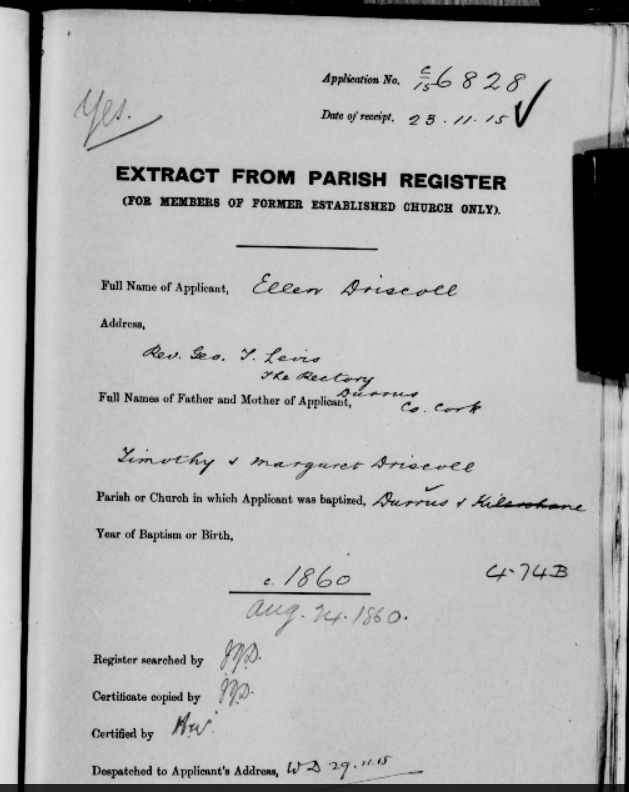 Application No. C/15 6828
Yes.
Date of receipt, 23.11.15
EXTRACT FROM PARISH REGISTER
(FOR MEMBERS OF FORMER ESTABLISHED CHURCH ONLY).
Full Name of Applicant, Ellen Driscoll
Address,
Rev. Geo. T. Levis
The Rectory
Durrus
Full Names of Father and Mother of Applicant, Co. Cork
Timothy & Margaret Driscoll
Parish or Church in which Applicant was baptized, Durrus & Kilcrohane
Year of Baptism or Birth,
c. 1860
4-74B
Aug. 24. 1860.
Register searched by
Certificate copied by
Certified by
Despatched to Applicant's Address, WD 29.11.15